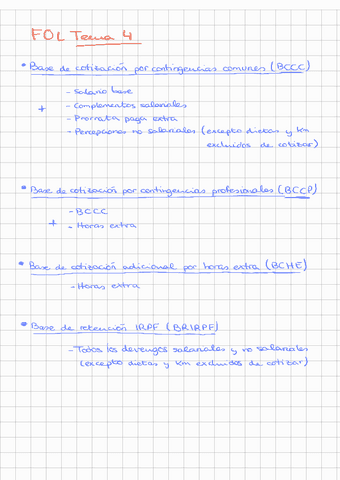 FOL Tema 4
• Base de cotización por contingencias comunes (BCCC)
- Salario base
+ - Complementos salariales
- Prorrata paga extra
- Percepciones no salariales (excepto dietas y km
excluidos de cotizar)
• Base de cotización por contingencias profesionales (BCCP)
- BCCC
+ - Horas extra
• Base de cotización adicional por horas extra (BCHE)
- Horas extra
• Base de retención IRPF (BRIRPF)
- Todos los devengos salariales y no salariales
(excepto dietas y km excluidos de cotizar)